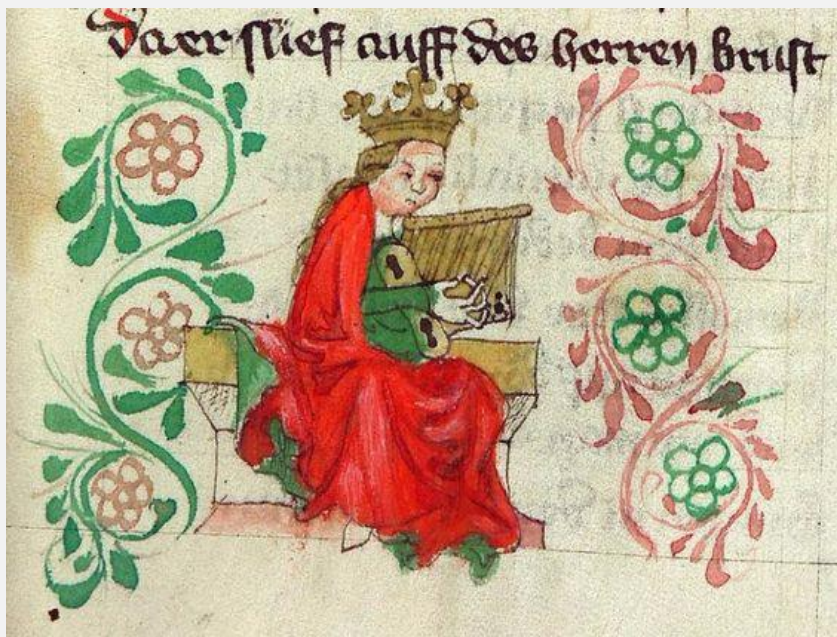 Da er slief auff des herren brust